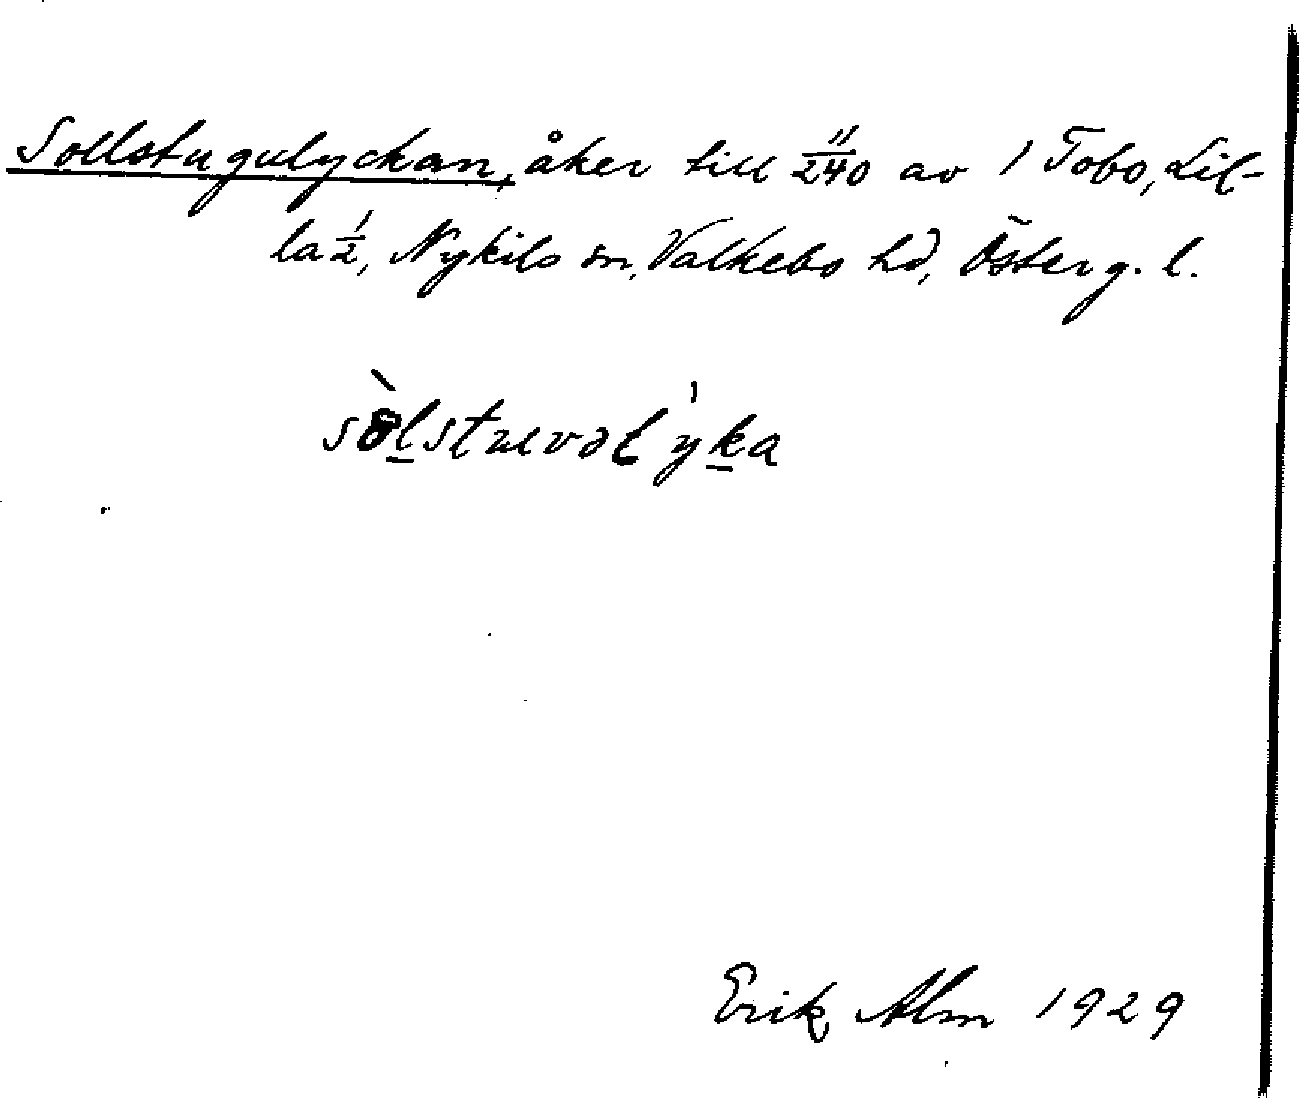 Sollstugulyckan, åker till 11/240 av 1 Tobo, Lil-
la 1/2, Nykils sn, Valkebo hd, Österg. l.
sòlstuvəlýka
Erik Alm 1929